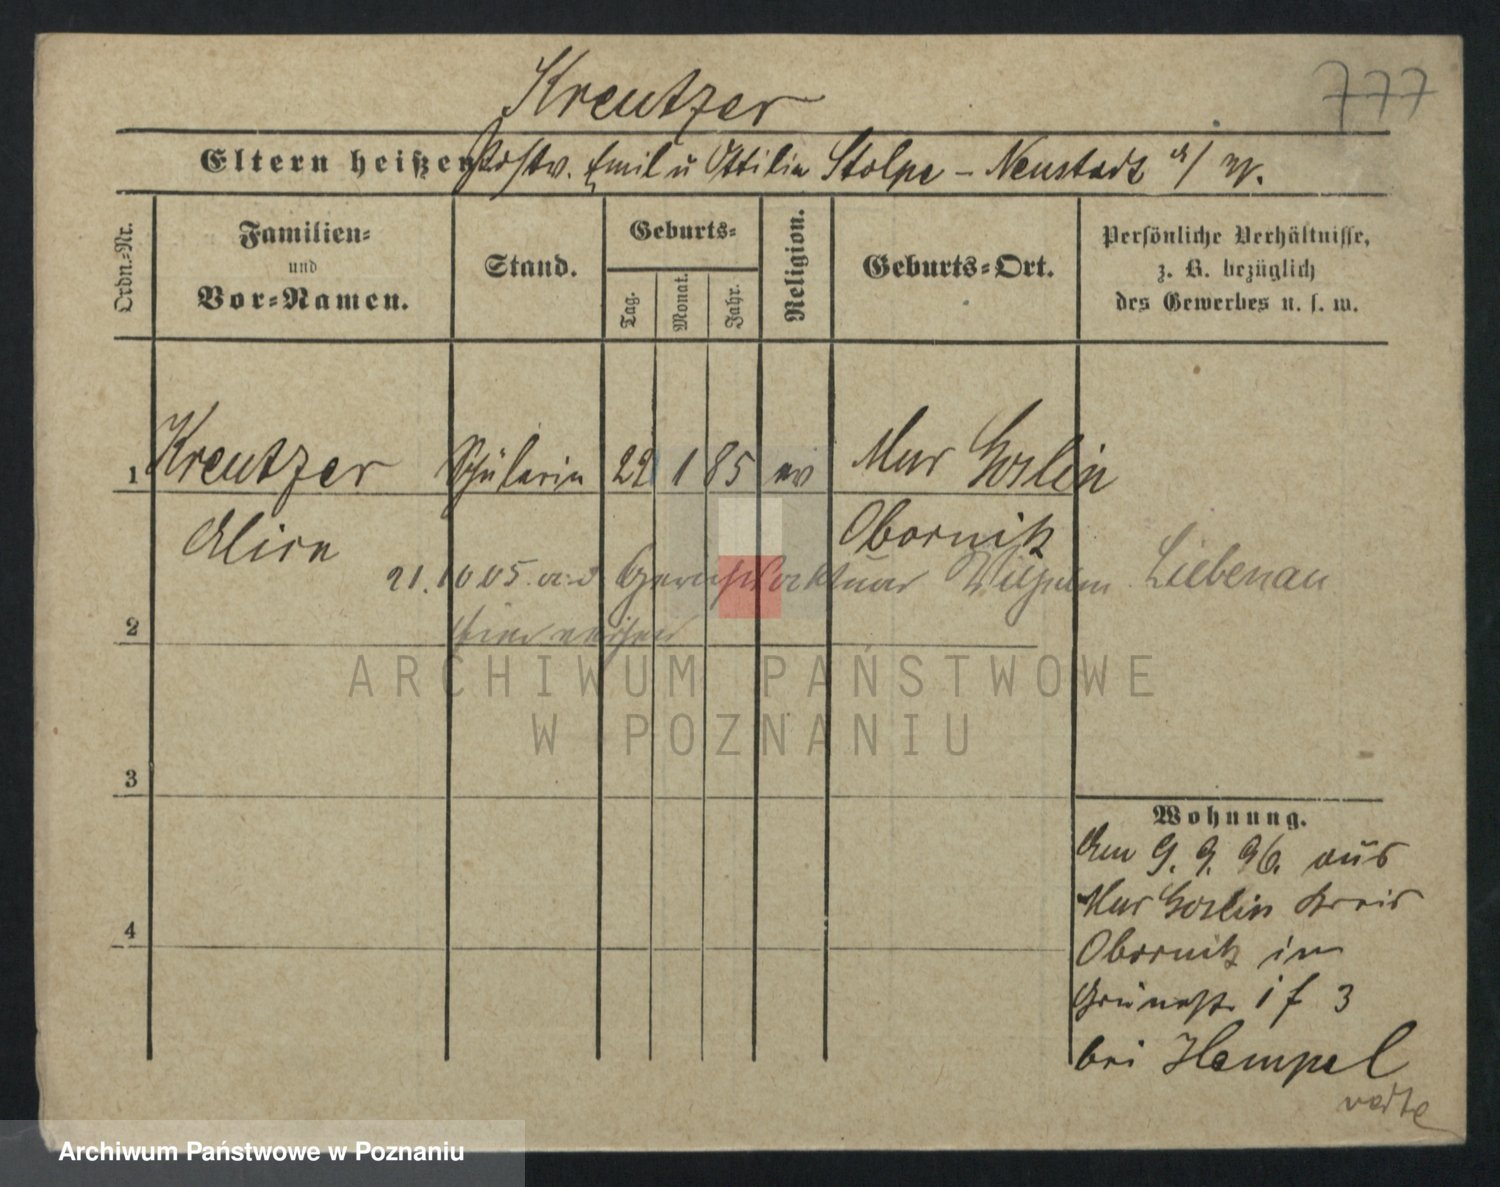 777
Kreutzer
Eltern heißen Postv. Emil u Ottilie Stolpe - Neustadt a/ W.
Ordn.-Nr.
Familien- und Vor-Namen.
Stand.
Geburts-
Tag.
Monat.
Jahr.
Religion.
Geburts-Ort.
Persönliche Verhältnisse,
z. B. bezüglich
des Gewerbes u. s. w.
1 Kreutzer Schülerin 22 1 85 ev Mur Goslin
Alice Obornik
21.10.05. Gerichtsaktuar Wilhelm Liebenau
hier
2
ARCHIWUM PAŃSTWOWE
W POZNANIU
3
Wohnung.
Am 9. 9. 96. aus
Mur Goslin Kreis
Obornik in
4
Grünestr. 1 f 3
bei Hempel
Archiwum Państwowe w Poznaniu